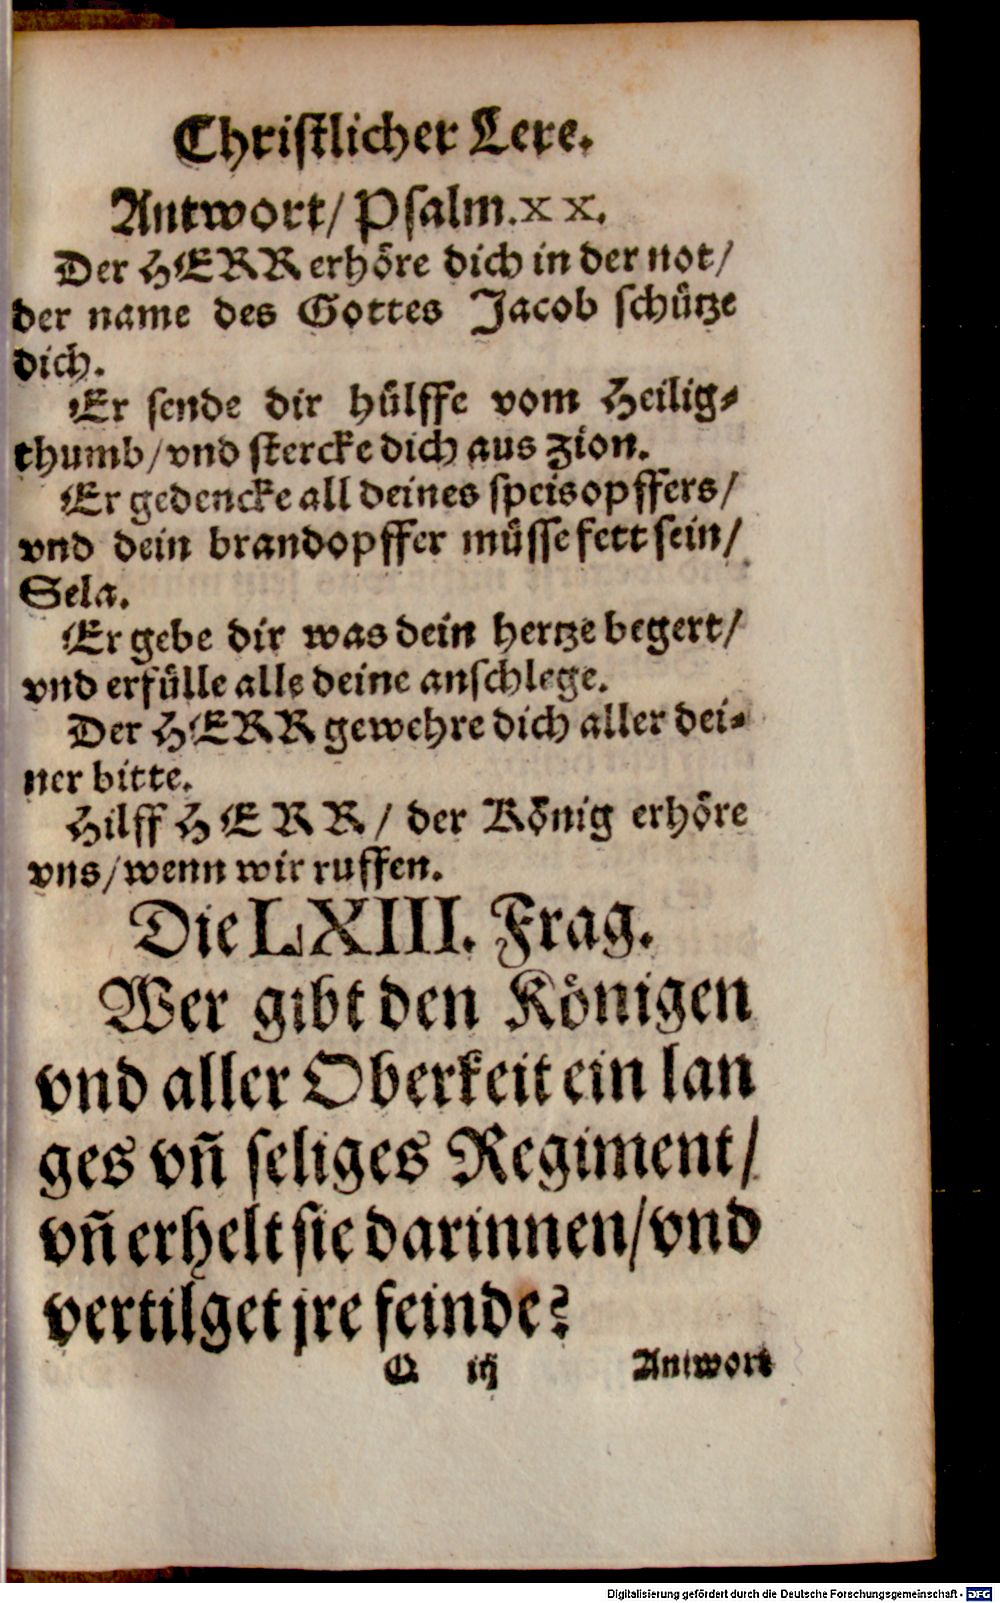 Chriſtlicher Lere.
Antwort/ Pſalm.xx.
Der HERR erhöre dich in der not/
der name des Gottes Jacob ſchütze
dich.
Er ſende dir hülffe vom Heilig⸗
thumb/vnd ſtercke dich aus Zion.
Er gedencke all deines ſpeisopffers/
vnd dein brandopffer müſſe fett ſein/
Sela.
Er gebe dir was dein hertze begert/
vnd erfülle alle deine anſchlege.
Der HERR gewehre dich aller dei⸗
ner bitte.
Hilff HERR/ der König erhöre
vns/wenn wir ruffen.
Die LXIII. Frag.
Wer gibt den Königen
vnd aller Oberkeit ein lan
ges vñ ſeliges Regiment/
vñ erhelt ſie darinnen/vnd
vertilget jre feinde?
Q iij Antwort
Digitalisierung gefördert durch die Deutsche Forschungsgemeinschaft - DFG